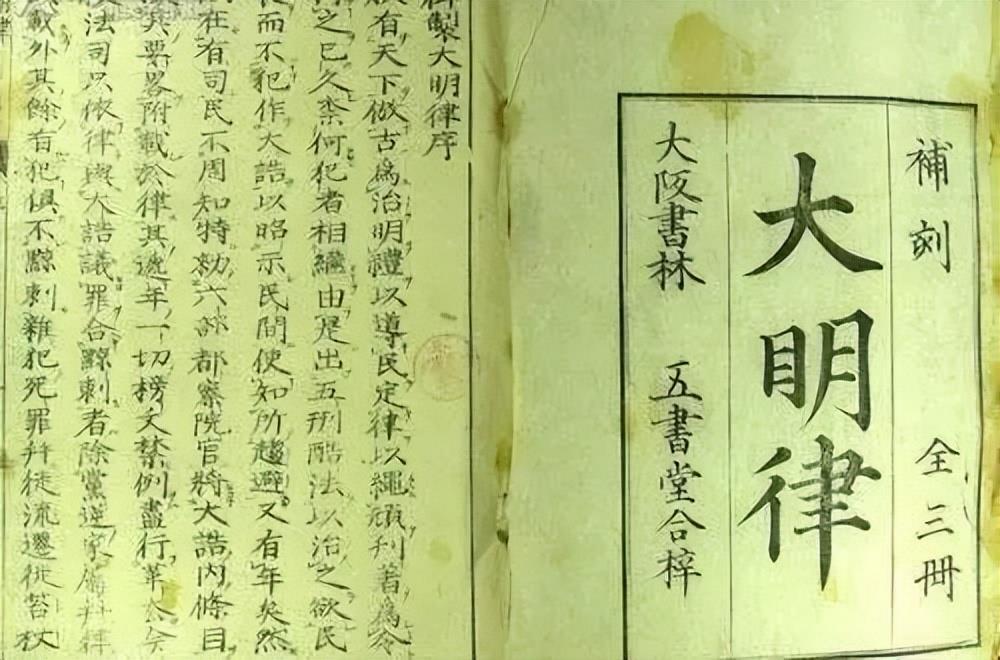 補刻 全三冊
大明律
大阪書林 五書堂合梓
御製大明律序
朕有天下倣古為治明禮以導民定律以繩頑刊著為令
行之已久柰何犯者相繼由是出五刑酷法以治之欲民
而不犯作大誥以昭示民間使知所趨避又有年矣然
在有司民不周知特勑六部都察院官將大誥内條目
其要畧附載於律其逓年一切榜文禁例盡行革去今
法司只依律與大誥議罪合黥刺者除黨逆家屬并律
載外其餘有犯俱不黥刺雜犯死罪并徒流遷徙笞杖